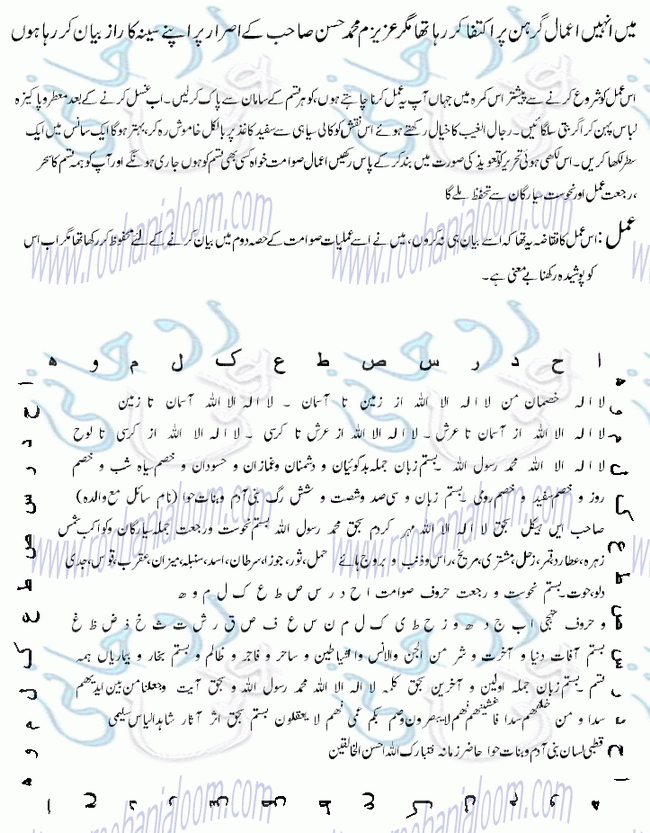 میں انہیں اعمال گرہن پر اکتفا کر رہا تھا مگر عزیزم محمد حسن صاحب کے اصرار پر اپنے سینہ کا راز بیان کر رہا ہوں
اس عمل کو شروع کرنے سے پیشتر اس کمرہ میں جہاں آپ یہ عمل کرنا چاہتے ہوں، کو ہر قسم کے سامان سے پاک کرلیں۔ اب غسل کرنے کے بعد معطر و پاکیزہ
لباس پہن کر اگربتی سلگائیں۔ رجال الغیب کا خیال رکھتے ہوئے اس نقش کو کالی سیاہی سے سفید کاغذ پر بالکل خاموش رہ کر، بہتر ہوگا ایک سانس میں ایک
سطر لکھا کریں۔ اس لکھی ہوئی تحریر کو تعویذ کی صورت میں بند کرکے پاس رکھیں اعمال صوامت خواہ کسی بھی قسم کو ہوں جاری ہونگے اور آپ کو ہمہ قسم کا سحر
، رجعت عمل اور نحوست سیارگان سے تحفظ ملے گا
عمل : اس عمل کا تقاضہ یہ تھا کہ اسے بیان ہی نہ کروں، میں نے اسے عملیات صوامت کے حصہ دوم میں بیان کرنے کے لئے محفوظ کر رکھا تھا مگر اب اس
کو پوشیدہ رکھنا بے معنی ہے۔
www.roohanialoom.com
ا ح د ر س ص ط ع ک ل م و ھ
لا الہ خصمان من لا الہ الا اللہ از زمین تا آسمان ۔ لا الہ الا اللہ آسمان تا زمین
لا الہ الا اللہ از آسمان تا عرش ۔ لا الہ الا اللہ از عرش تا کرسی ۔ لا الہ الا اللہ از کرسی تا لوح
لا الہ الا اللہ محمد رسول اللہ بستم زبان جملہ بدگوئیان و دشمنان و غمازان و حسودان و خصم سیاہ شب و خصم
روز و خصم سفید و خصم روی بستم زبان و سی صد و شصت و شش رگ بنی آدم و بنات حوا (نام سائل مع والدہ)
صاحب ایں ہیکل بحق لا الہ الا اللہ مہر کردم بحق محمد رسول اللہ بستم نحوست و رجعت جملہ سیارگان و کواکب شمس
زہرہ، عطارد، قمر، زحل، مشتری، مریخ، راس و ذنب و بروج ہائے حمل، ثور، جوزا، سرطان، اسد، سنبلہ، میزان، عقرب، قوس، جدی
دلو، حوت۔ بستم نحوست و رجعت حروف صوامت ا ح د ر س ص ط ع ک ل م و ھ
و حروف تہجی ا ب ج د ھ و ز ح ط ی ک ل م ن س ع ف ص ق ر ش ت ث خ ذ ض ظ غ
بستم آفات دنیا و آخرت و شر من الجن والانس والشیاطین و ساحر و فاجر و ظالم و بستم بخار و بیماریاں ہمہ
قسم بستم زبان جملہ اولین و آخرین بحق کلمہ لا الہ الا اللہ محمد رسول اللہ و بحق آیت وجعلنا من بین ایدیھم
سدا و من خلفھم سدا فاغشینھم فھم لا یبصرون و صم بکم عمی فھم لا یعقلون بستم بحق اثر آثار شاھد الیاس سلیمی
قطبی لسان بنی آدم و بنات حوا حاضر زمانہ فتبارک اللہ احسن الخالقین
ا ح د ر س ص ط ع ک ل م و ھ
ا ح د ر س ص ط ع ک ل م و ھ
ا ح د ر س ص ط ع ک ل م و ھ